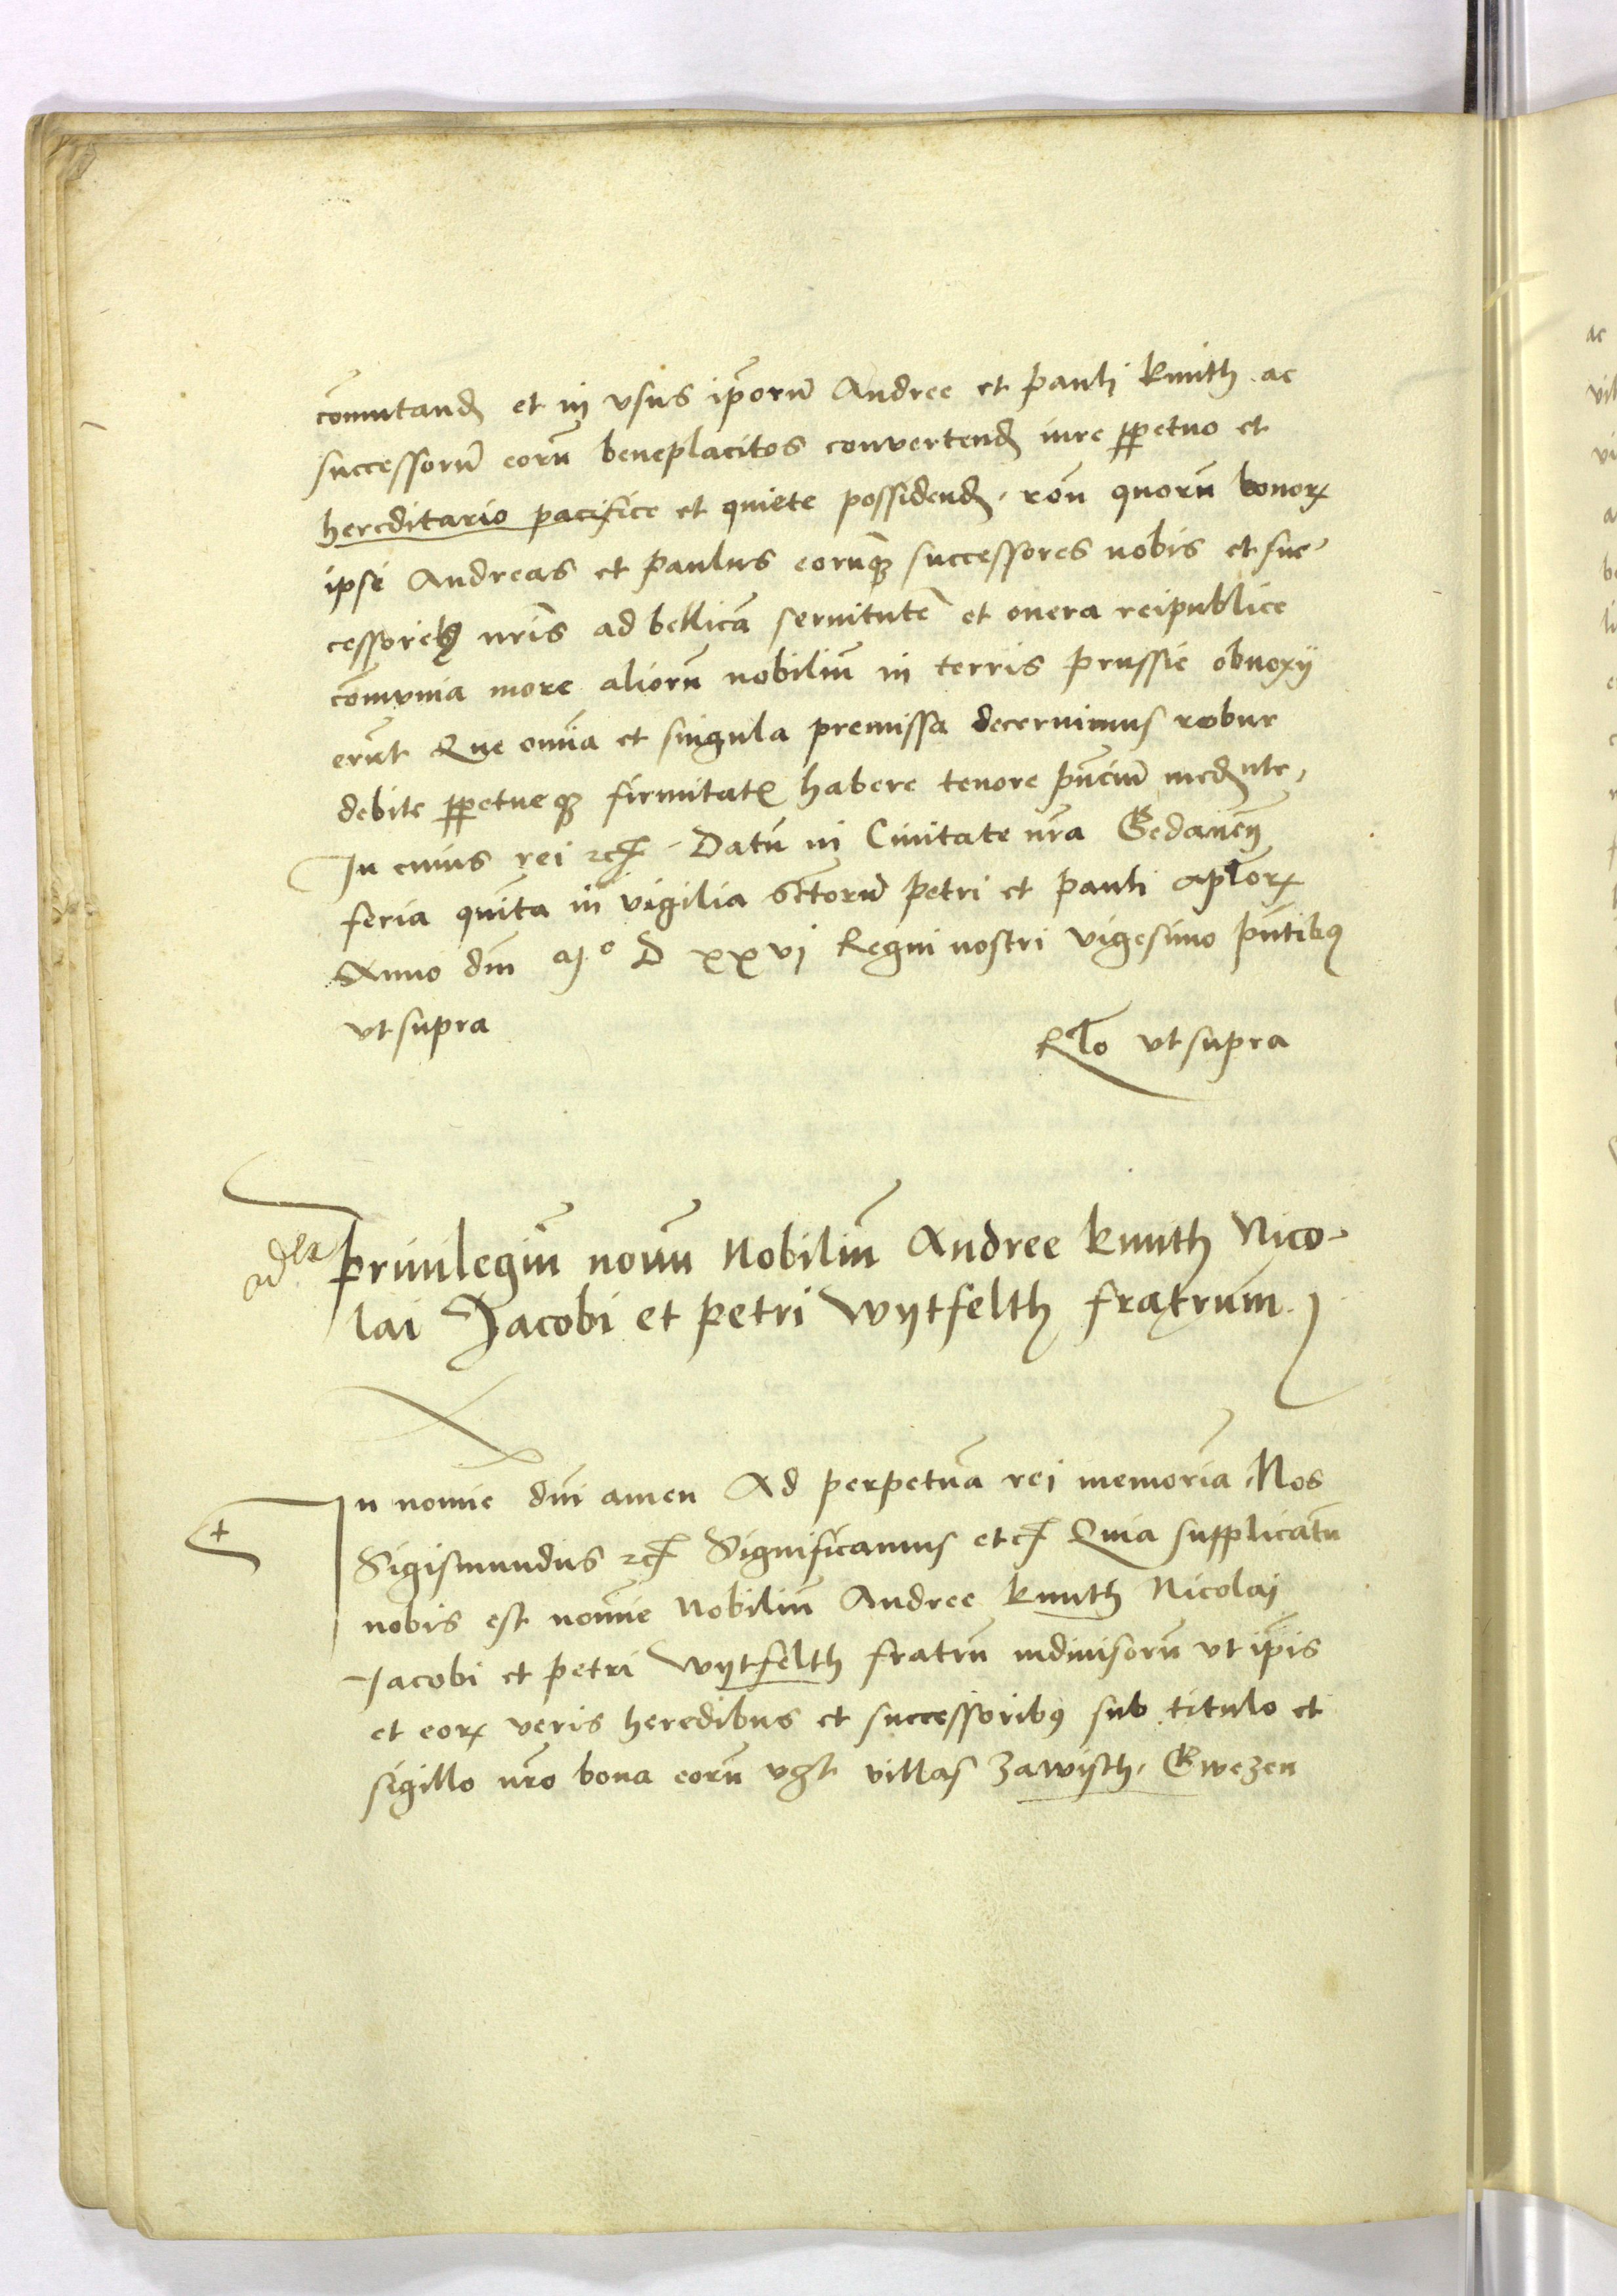 com̄utand et in vsus ip̄orum̄ Andree et pauli knuth ac
successorum̄ eorū beneplacitos convertend iure ꝑpetuo et
hereditario pacifice et quiete possidend, ron̄ quorū bonorꝝ
ipsi Andreas et Paulus eorumqꝫ successores nobis et suc-
cessoribꝫ nr̄is ad bellicā seruitutē et onera reipublice
com̄unia more aliorū nobiliū in terris Prussie obnoxij
erūt Que om̄ia et singula premissa decernimus robur
debite ꝑpetueqꝫ firmitatꝭ habere tenore pn̄cium̄ medn̄te,
In cuius rei ꝛcꝭ. Datū in Ciuitate nr̄a Gedanen̄
feria quīta in vigilia sc̄torum̄ petri et pauli aplorꝝ
Anno dn̄i M° D xxvj Regni nostri vigesimo pn̄tibꝰ
vt supra
Rło vt supra
Priuilegiū nouū Nobiliū Andree knuth Nico-
lai Jacobi et Petri Wytfelth fratrum.
In noīe dn̄i amen Ad perpetuā rei memoriā Nos
Sigismundus ꝛcꝭ Significamus etcꝭ Quia supplicatū
nobis est noīe Nobiliū Andree knuth Nicolaj
Jacobi et Petri Wytfelth fratrū indiuisorū vt ip̄is
et eorꝝ veris heredibus et successoribꝰ sub titulo et
sigillo nr̄o bona eorū vꝫt villas Zawisch, Gwezen